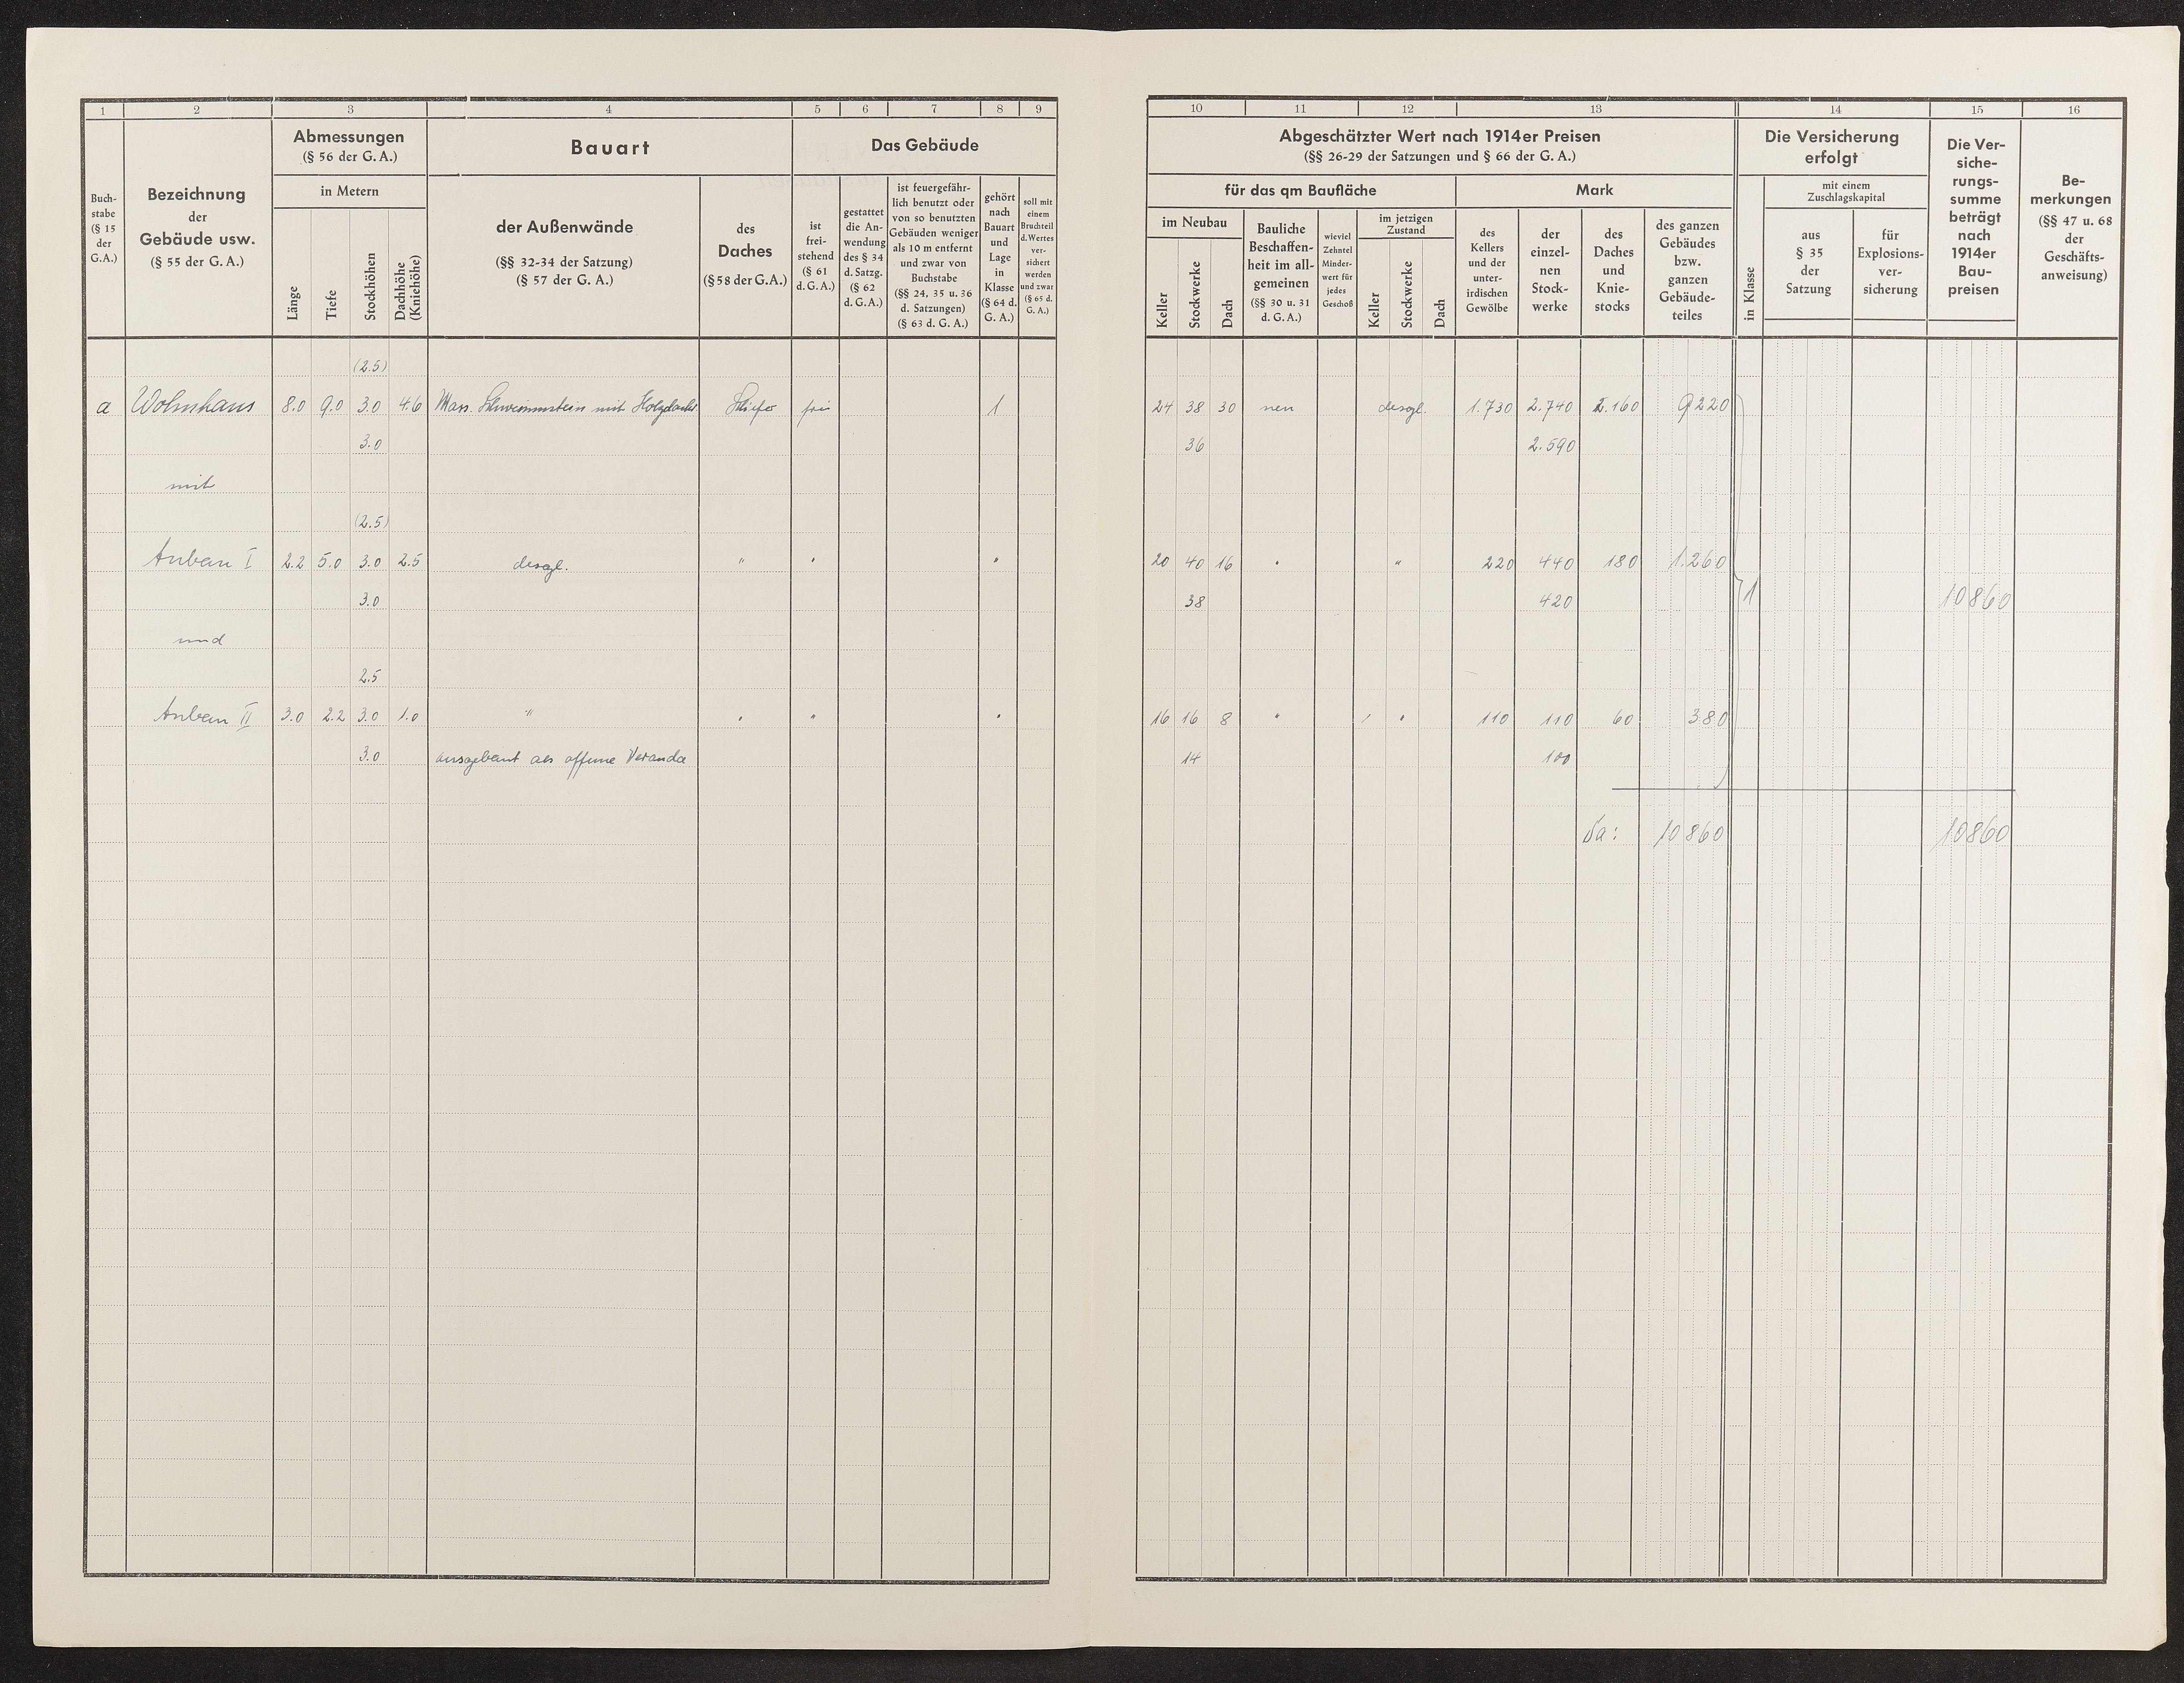 1 2 3 4 5 6 7 8 9
Abmessungen
(§ 56 der G. A.)
in Metern
Bauart
Das Gebäude
Buch-
stabe
(§ 15
der
G.A.)
Bezeichnung
der
Gebäude usw.
(§ 55 der G. A.)
Länge
Tiefe
Stockhöhen
Dachhöhe
(Kniehöhe)
der Außenwände
(§§ 32-34 der Satzung)
(§ 57 der G. A.)
des
Daches
(§ 58 der G.A.)
ist
frei-
stehend
(§ 61
d. G. A.)
gestattet
die An-
wendung
des § 34
d. Satzg.
(§ 62
d. G. A.)
ist feuergefähr-
lich benutzt oder
von so benutzten
Gebäuden weniger
als 10 m entfernt
und zwar von
Buchstabe
(§§ 24, 35 u. 36
d. Satzungen)
(§ 63 d. G. A.)
gehört
nach
Bauart
und
Lage
in
Klasse
(§ 64 d.
G. A.)
soll mit
einem
Bruchteil
d. Wertes
ver-
sichert
werden
und zwar
(§ 65 d.
G. A.)
(2.5)
a Wohnhaus 8.0 9.0 3.0 4.6 Mass. Schwemmstein mit Holzdach Schiefer frei 1
3.0
mit
(2.5)
Anbau I 2.2 5.0 3.0 2.5 desgl. " " "
3.0
und
2.5
Anbau II 3.0 2.2 3.0 1.0 " " " "
3.0 ausgebaut als offene Veranda
10 11 12 13 14 15 16
Abgeschätzter Wert nach 1914er Preisen
(§§ 26-29 der Satzungen und § 66 der G. A.)
für das qm Baufläche
Mark
im Neubau
Keller
Stockwerke
Dach
Bauliche
Beschaffen-
heit im all-
gemeinen
(§§ 30 u. 31
d. G. A.)
wieviel
Zehntel
Minder-
wert für
jedes
Geschoß
im jetzigen
Zustand
Keller
Stockwerke
Dach
des
Kellers
und der
unter-
irdischen
Gewölbe
der
einzel-
nen
Stock-
werke
des
Daches
und
Knie-
stocks
des ganzen
Gebäudes
bzw.
ganzen
Gebäude-
teiles
Die Versicherung
erfolgt
in Klasse
mit einem
Zuschlagskapital
aus
§ 35
der
Satzung
für
Explosions-
ver-
sicherung
Die Ver-
siche-
rungs-
summe
beträgt
nach
1914er
Bau-
preisen
Be-
merkungen
(§§ 47 u. 68
der
Geschäfts-
anweisung)
24 38 30 neu desgl. 1.730 2.740 2.160 9220
36 2.590
20 40 16 " " 220 440 180 1.260
38 420 1 10860
16 16 8 " " " 110 110 60 380
14 100
Sa: 10860 10860